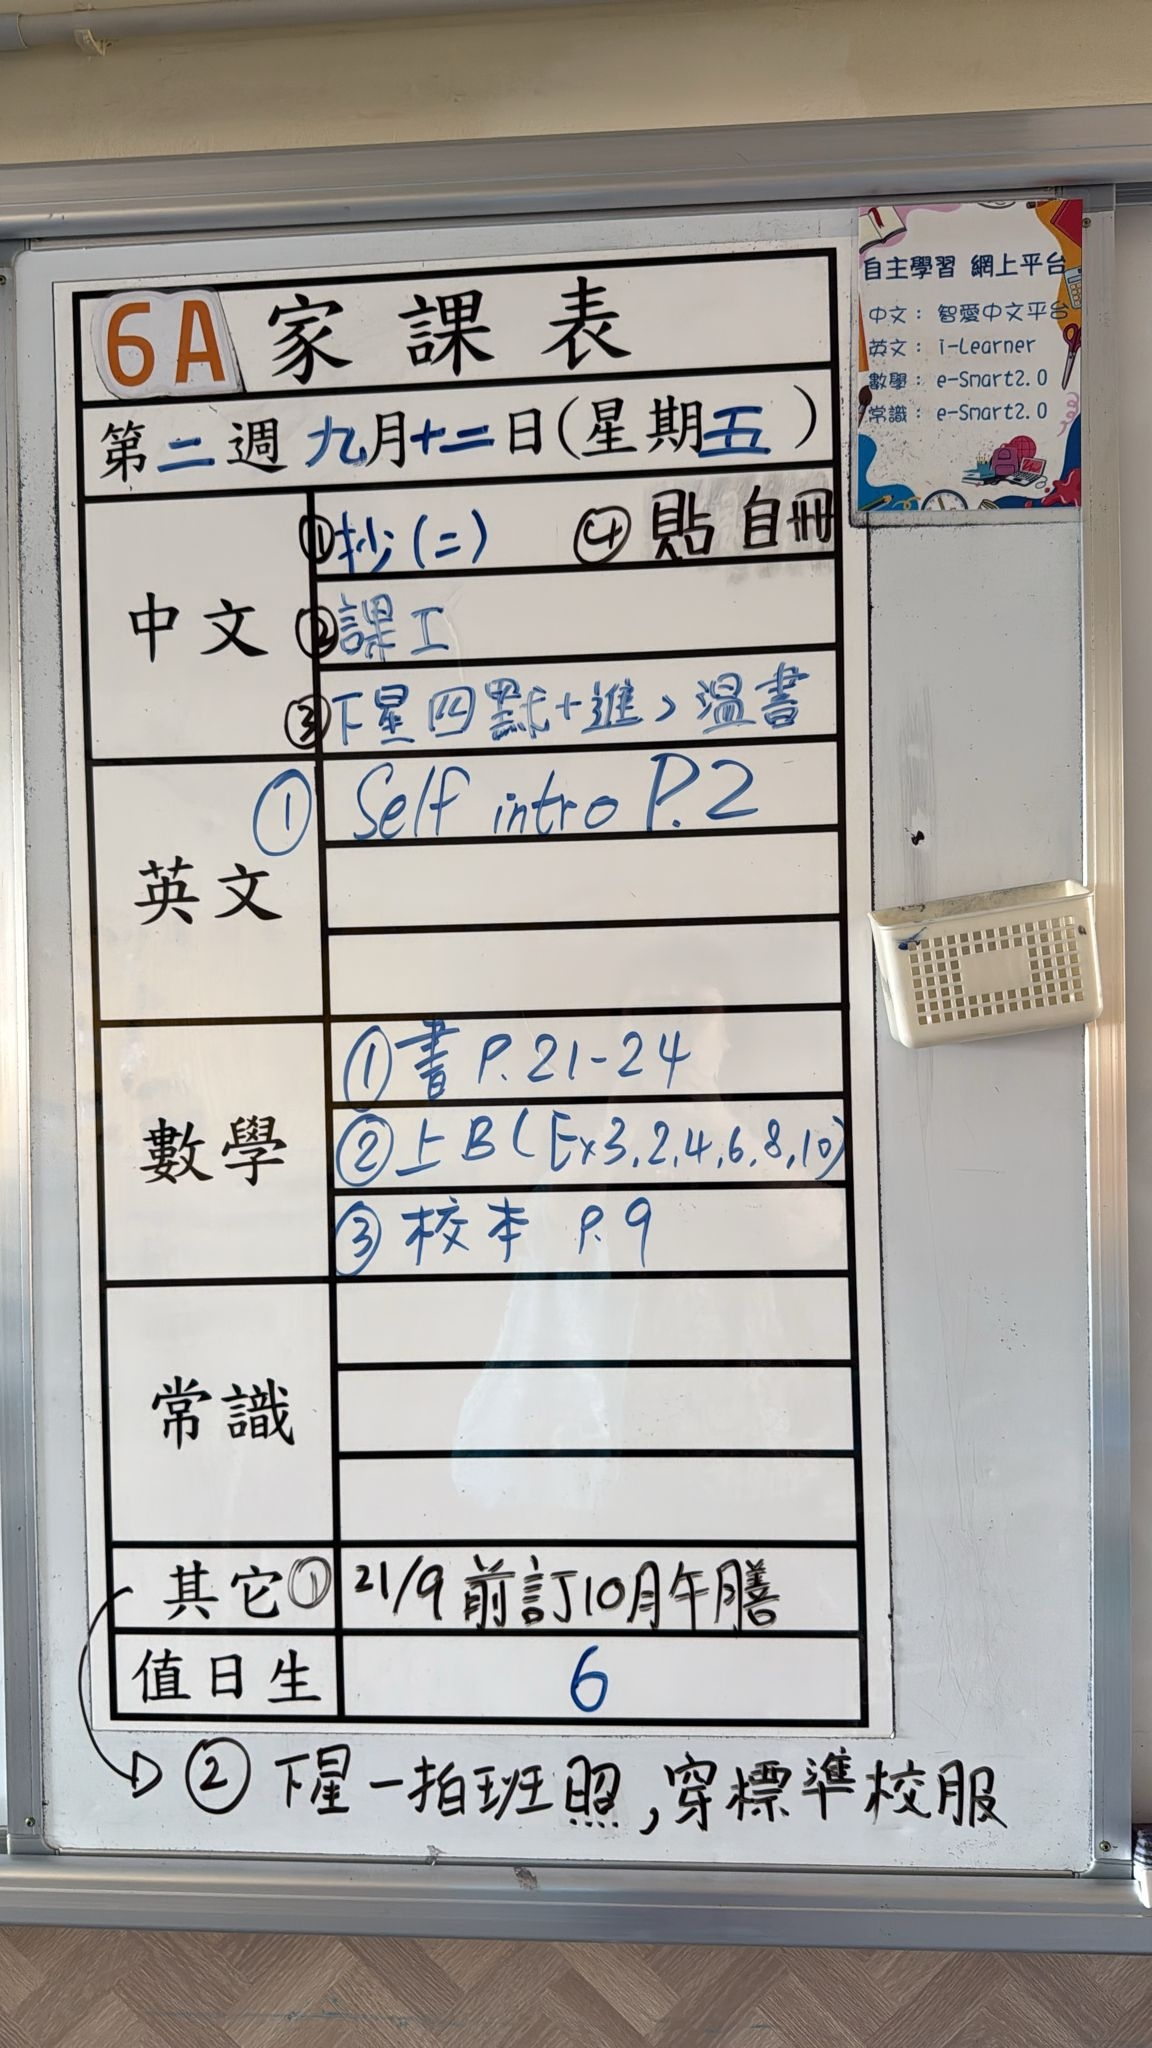 6A 家課表
第二週 九月十二日(星期五)
中文
①抄(二) ④貼自冊
②課工
③下星四默+進,溫書
英文
① Self intro P.2
數學
①書 P.21-24
②上B(Ex3,2,4,6,8,10)
③校本 P.9
常識
其它
①21/9前訂10月午膳
值日生
6
②下星一拍班照,穿標準校服
自主學習 網上平台
中文: 智愛中文平台
英文: i-Learner
數學: e-Smart2.0
常識: e-Smart2.0